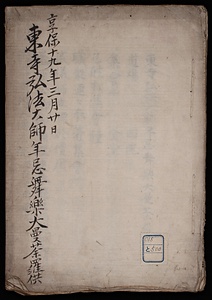 享保十九年三月廿日
東寺弘法大師年忌舞樂大曼荼羅供